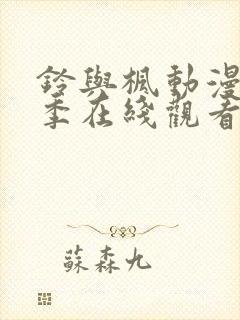 鈴與楓動漫
季在綫觀看
蘇森九